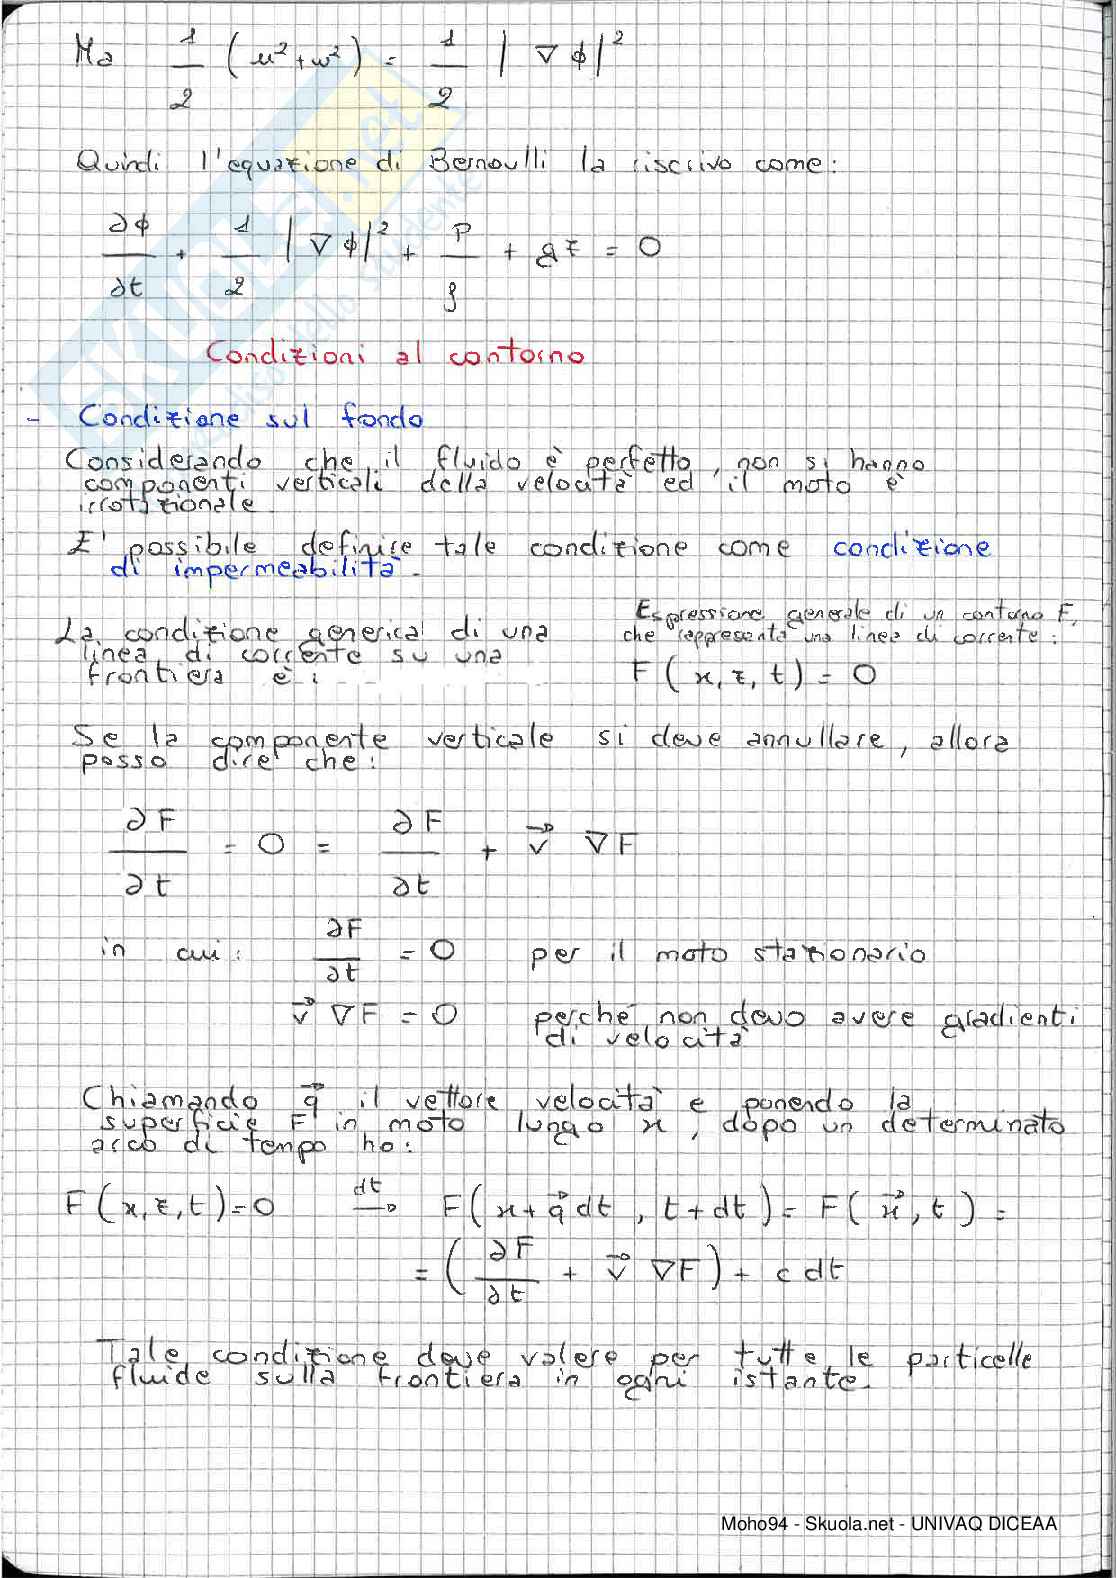 Ma 1/2 (u²+w²) = 1/2 |∇ϕ|²
Quindi l'equazione di Bernoulli la riscrivo come:
∂ϕ/∂t + 1/2 |∇ϕ|² + P/ρ + gz = 0
Condizioni al contorno
- Condizione sul fondo
Considerando che il fluido è perfetto, non si hanno
componenti verticali della velocità ed il moto è
irrotazionale.
E' possibile definire tale condizione come condizione
di impermeabilità.
La condizione generical di una
linea di corrente su una
frontiera è:
Espressione generale di un contorno F,
che rappresenta una linea di corrente:
F(x,z,t) = 0
Se la componente verticale si deve annullare, allora
posso dire che:
∂F/∂t = 0 = ∂F/∂t + v⃗ ∇F
in cui: ∂F/∂t = 0 per il moto stazionario
v⃗ ∇F = 0 perché non devo avere gradienti
di velocità
Chiamando q⃗ il vettore velocità e ponendo la
superficie F in moto lungo x, dopo un determinato
arco di tempo ho:
F(x,z,t)=0 dt→ F(x+q⃗dt, t+dt) = F(x⃗,t) =
= (∂F/∂t + v⃗ ∇F) + c dt
Tale condizione deve valere per tutte le particelle
fluide sulla frontiera in ogni istante.
Moho94 - Skuola.net - UNIVAQ DICEAA
SKUOLA.net